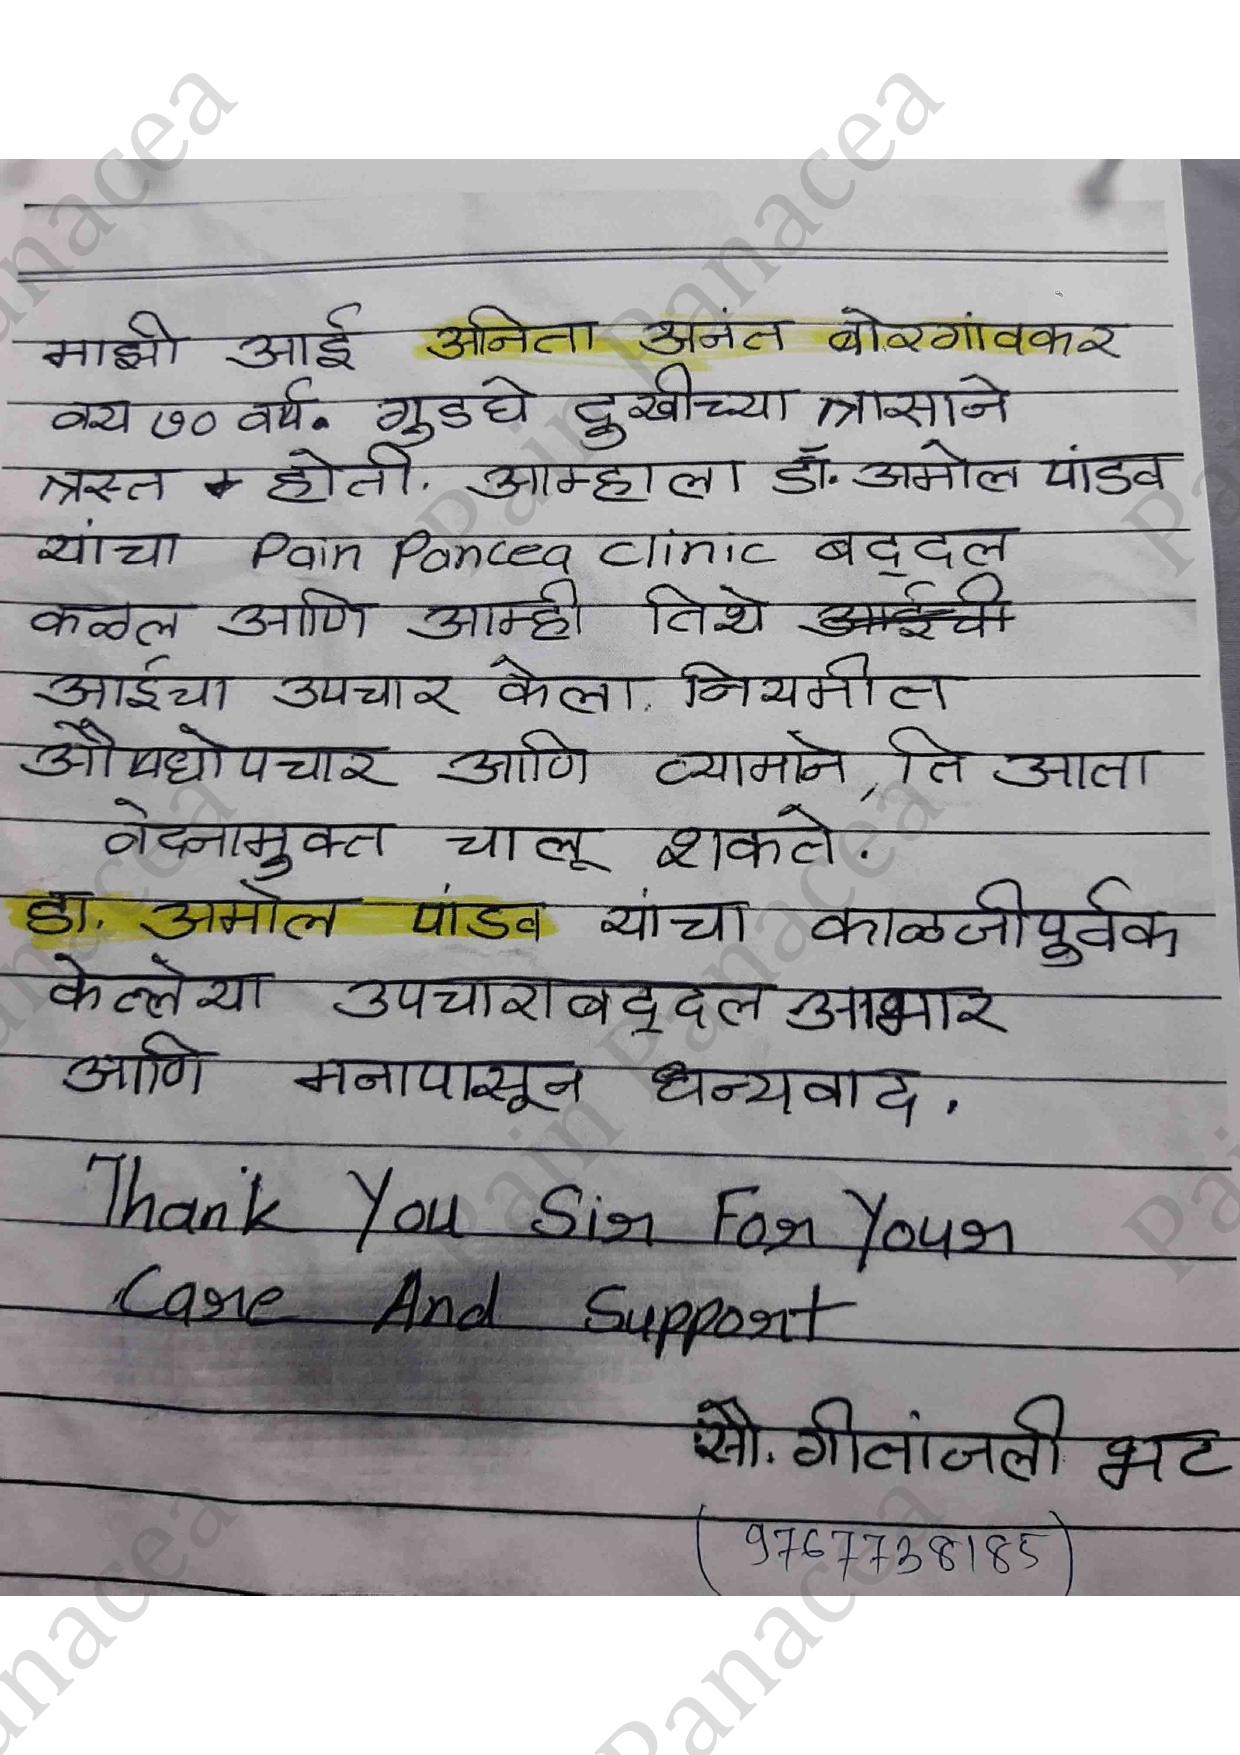 माझी आई अनिता अनंत बोरगांवकर
वय ७० वर्ष. गुडघे दुखीच्या त्रासाने
त्रस्त होती. आम्हाला डॉ. अमोल पांडव
यांचा Pain Pancea clinic बद्दल
कळल आणि आम्ही तिथे आईची
आईचा उपचार केला. नियमीत
औषधोपचार आणि व्यामाने, ति आता
वेदनामुक्त चालू शकते.
डा. अमोल पांडव यांचा काळजीपुर्वक
केल्लेया उपचाराबद्दल आभार
आणि मनापासून धन्यवाद.
Thank You Sir For Your
Care And Support
सौ. गीतांजली भट
(9767738185)
Pain Panacea